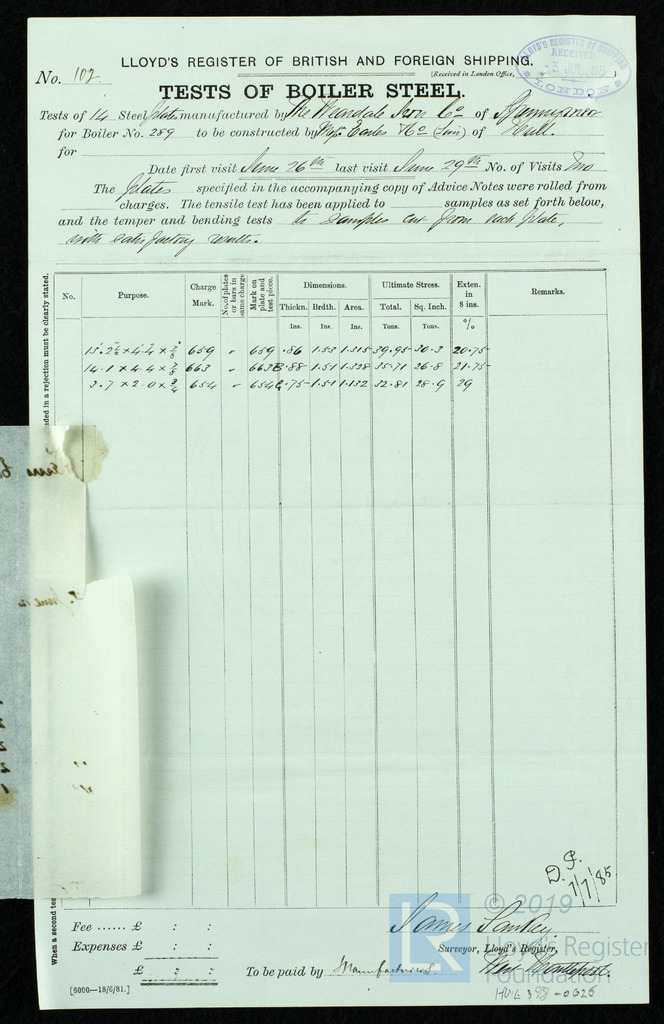 No. 102
LLOYD'S REGISTER OF BRITISH AND FOREIGN SHIPPING,
(Received in London Office, )
LLOYD'S REGISTER OF SHIPPING
RECEIVED
3 JUL 85
LONDON
TESTS OF BOILER STEEL.
Tests of 14 Steel Plates manufactured by The Weardale Iron Co of Spennymoor
for Boiler No. 289 to be constructed by Messrs Earles & Co (Lim) of Hull.
for
Date first visit June 26th last visit June 29th No. of Visits Two
The Plates specified in the accompanying copy of Advice Notes were rolled from
charges. The tensile test has been applied to samples as set forth below,
and the temper and bending tests to samples cut from each plate,
with satisfactory results.
No. Purpose. Charge Mark. No. of plates or bars in same charge Mark on plate and test piece. Dimensions. Ultimate Stress. Exten. in 8 ins. Remarks.
Thickn. Brdth. Area. Total. Sq. Inch.
Ins. Ins. Ins. Tons. Tons. %
659 " 659 .86 1.53 1.315 39.95 30.3 20.75
14.1 x 4.4 x 7/8 663 " 663B .88 1.51 1.328 35.71 26.8 21.75
3.7 x 2.0 x 3/4 654 " 654C .75 1.51 1.132 32.81 28.9 29
nded in a rejection must be clearly stated.
When a second tes
D.P.
7/7/85
Fee ...... £ : :
Expenses £ : :
£ : :
[5000—18/6/81.]
To be paid by Manufacturers.
James Sankey
Surveyor, Lloyd's Register,
West Hartlepool
HUL 398-0325
LR
© 2019
Lloyd's Register
Foundation